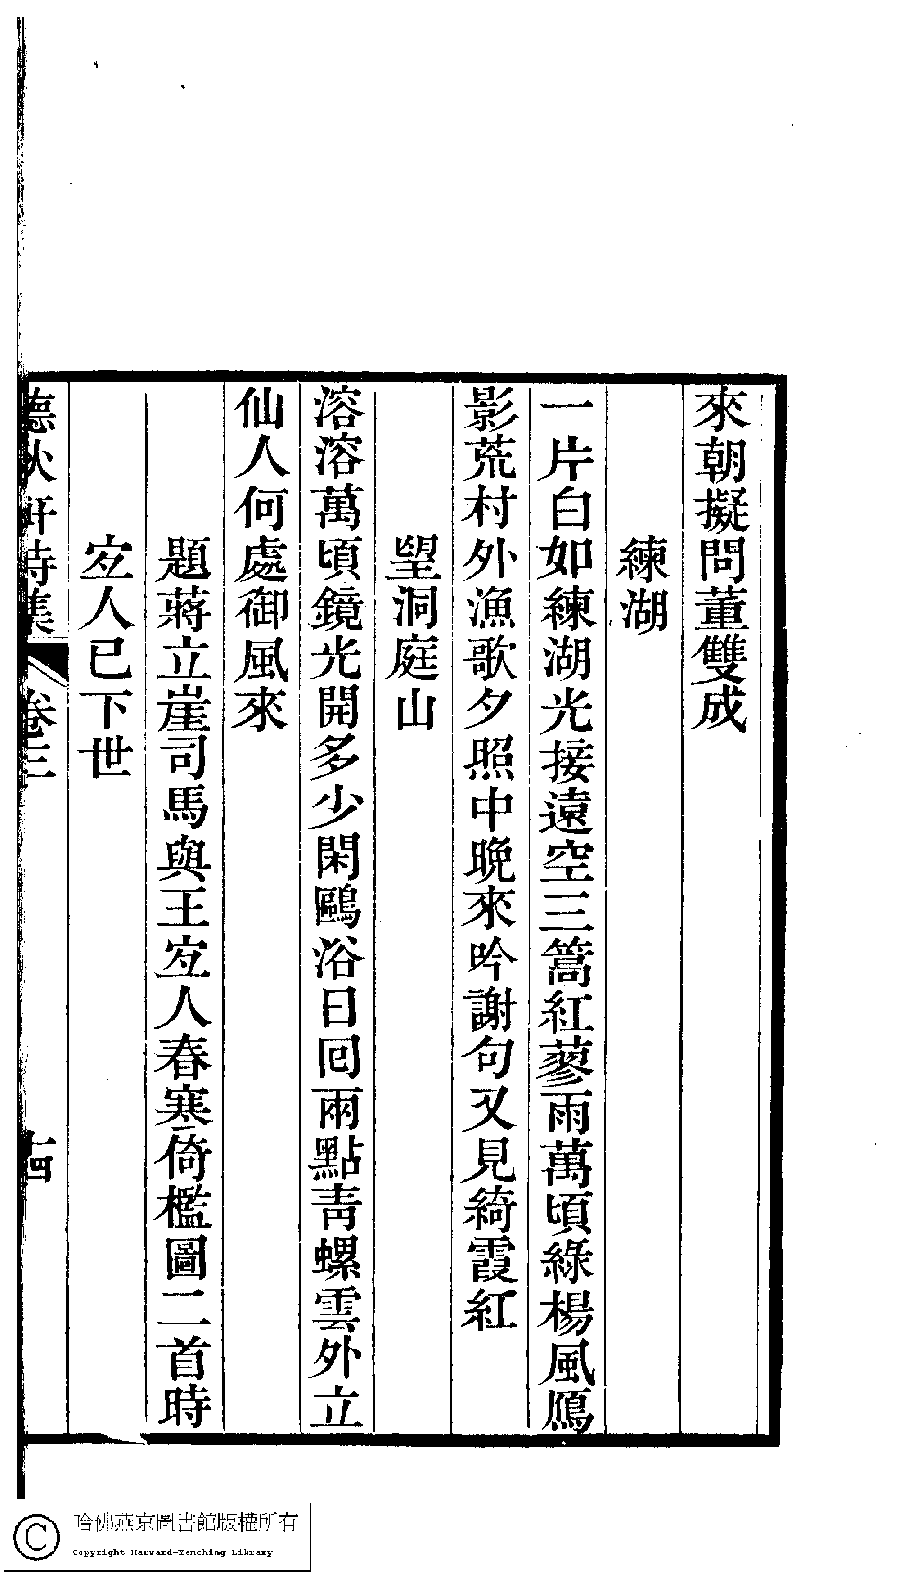 來朝擬問董雙成
練湖
一片白如練湖光接遠空三篙紅蓼雨萬頃綠楊風鴈
影荒村外漁歌夕照中晚來吟謝句又見綺霞紅
望洞庭山
溶溶萬頃鏡光開多少閑鷗浴日囘兩點靑螺雲外立
仙人何處御風來
題蔣立崖司馬與王㝎人春寒倚檻圖二首時
㝎人已下世
軒詩集 卷三 十四
哈佛燕京圖書館版權所有
Copyright Harvard-Yenching Library